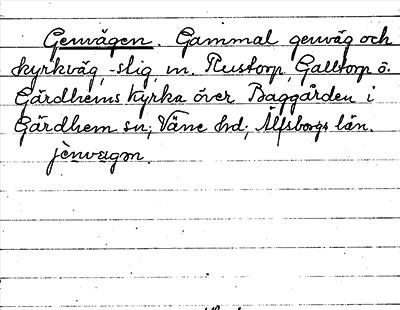 Genvägen. Gammal genväg och
kyrkväg, -stig, m. Rustorp, Galltorp o.
Gärdhems kyrka över Baggården i
Gärdhem sn; Väne hd; Älfsborgs län.
jènvægən.